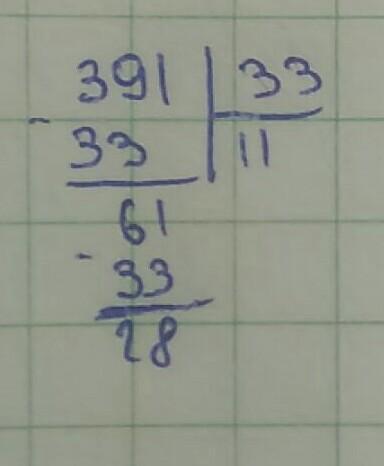 391 | 33
- 33 | 11
61
- 33
28